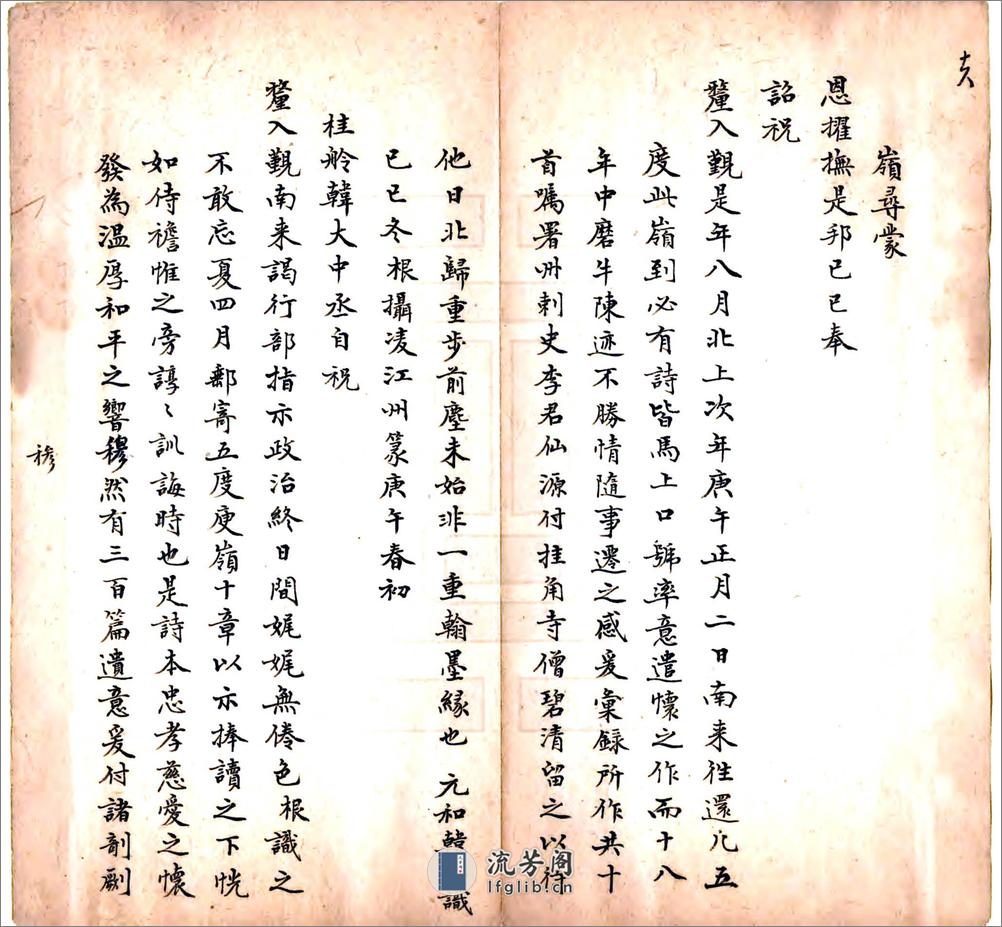 嶺尋蒙
恩擢撫是邦己巳奉
詔祝
釐入覲是年八月北上次年庚午正月二日南来往還凡五
度此嶺到必有詩皆馬上口號率意遣懷之作而十八
年中磨牛陳迹不勝情隨事遷之感爰彙錄所作共十
首囑署州刺史李君仙源付挂角寺僧碧清留之以待
他日北歸重步前塵未始非一重翰墨緣也 元和韓 識
己巳冬根攝凌江州篆庚午春初
桂舲韓大中丞自祝
釐入覲南来謁行部指示政治終日間娓娓無倦色根識之
不敢忘夏四月郵寄五度庾嶺十章以示捧讀之下恍
如侍襜惟之旁諄〻訓誨時也是詩本忠孝慈愛之懷
發為温厚和平之響穆然有三百篇遺意爰付諸剞劂
穆
流芳阁
lfglib.cn